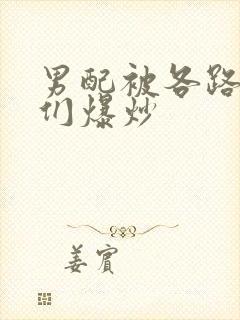 男配被各路
们爆炒
姜宾